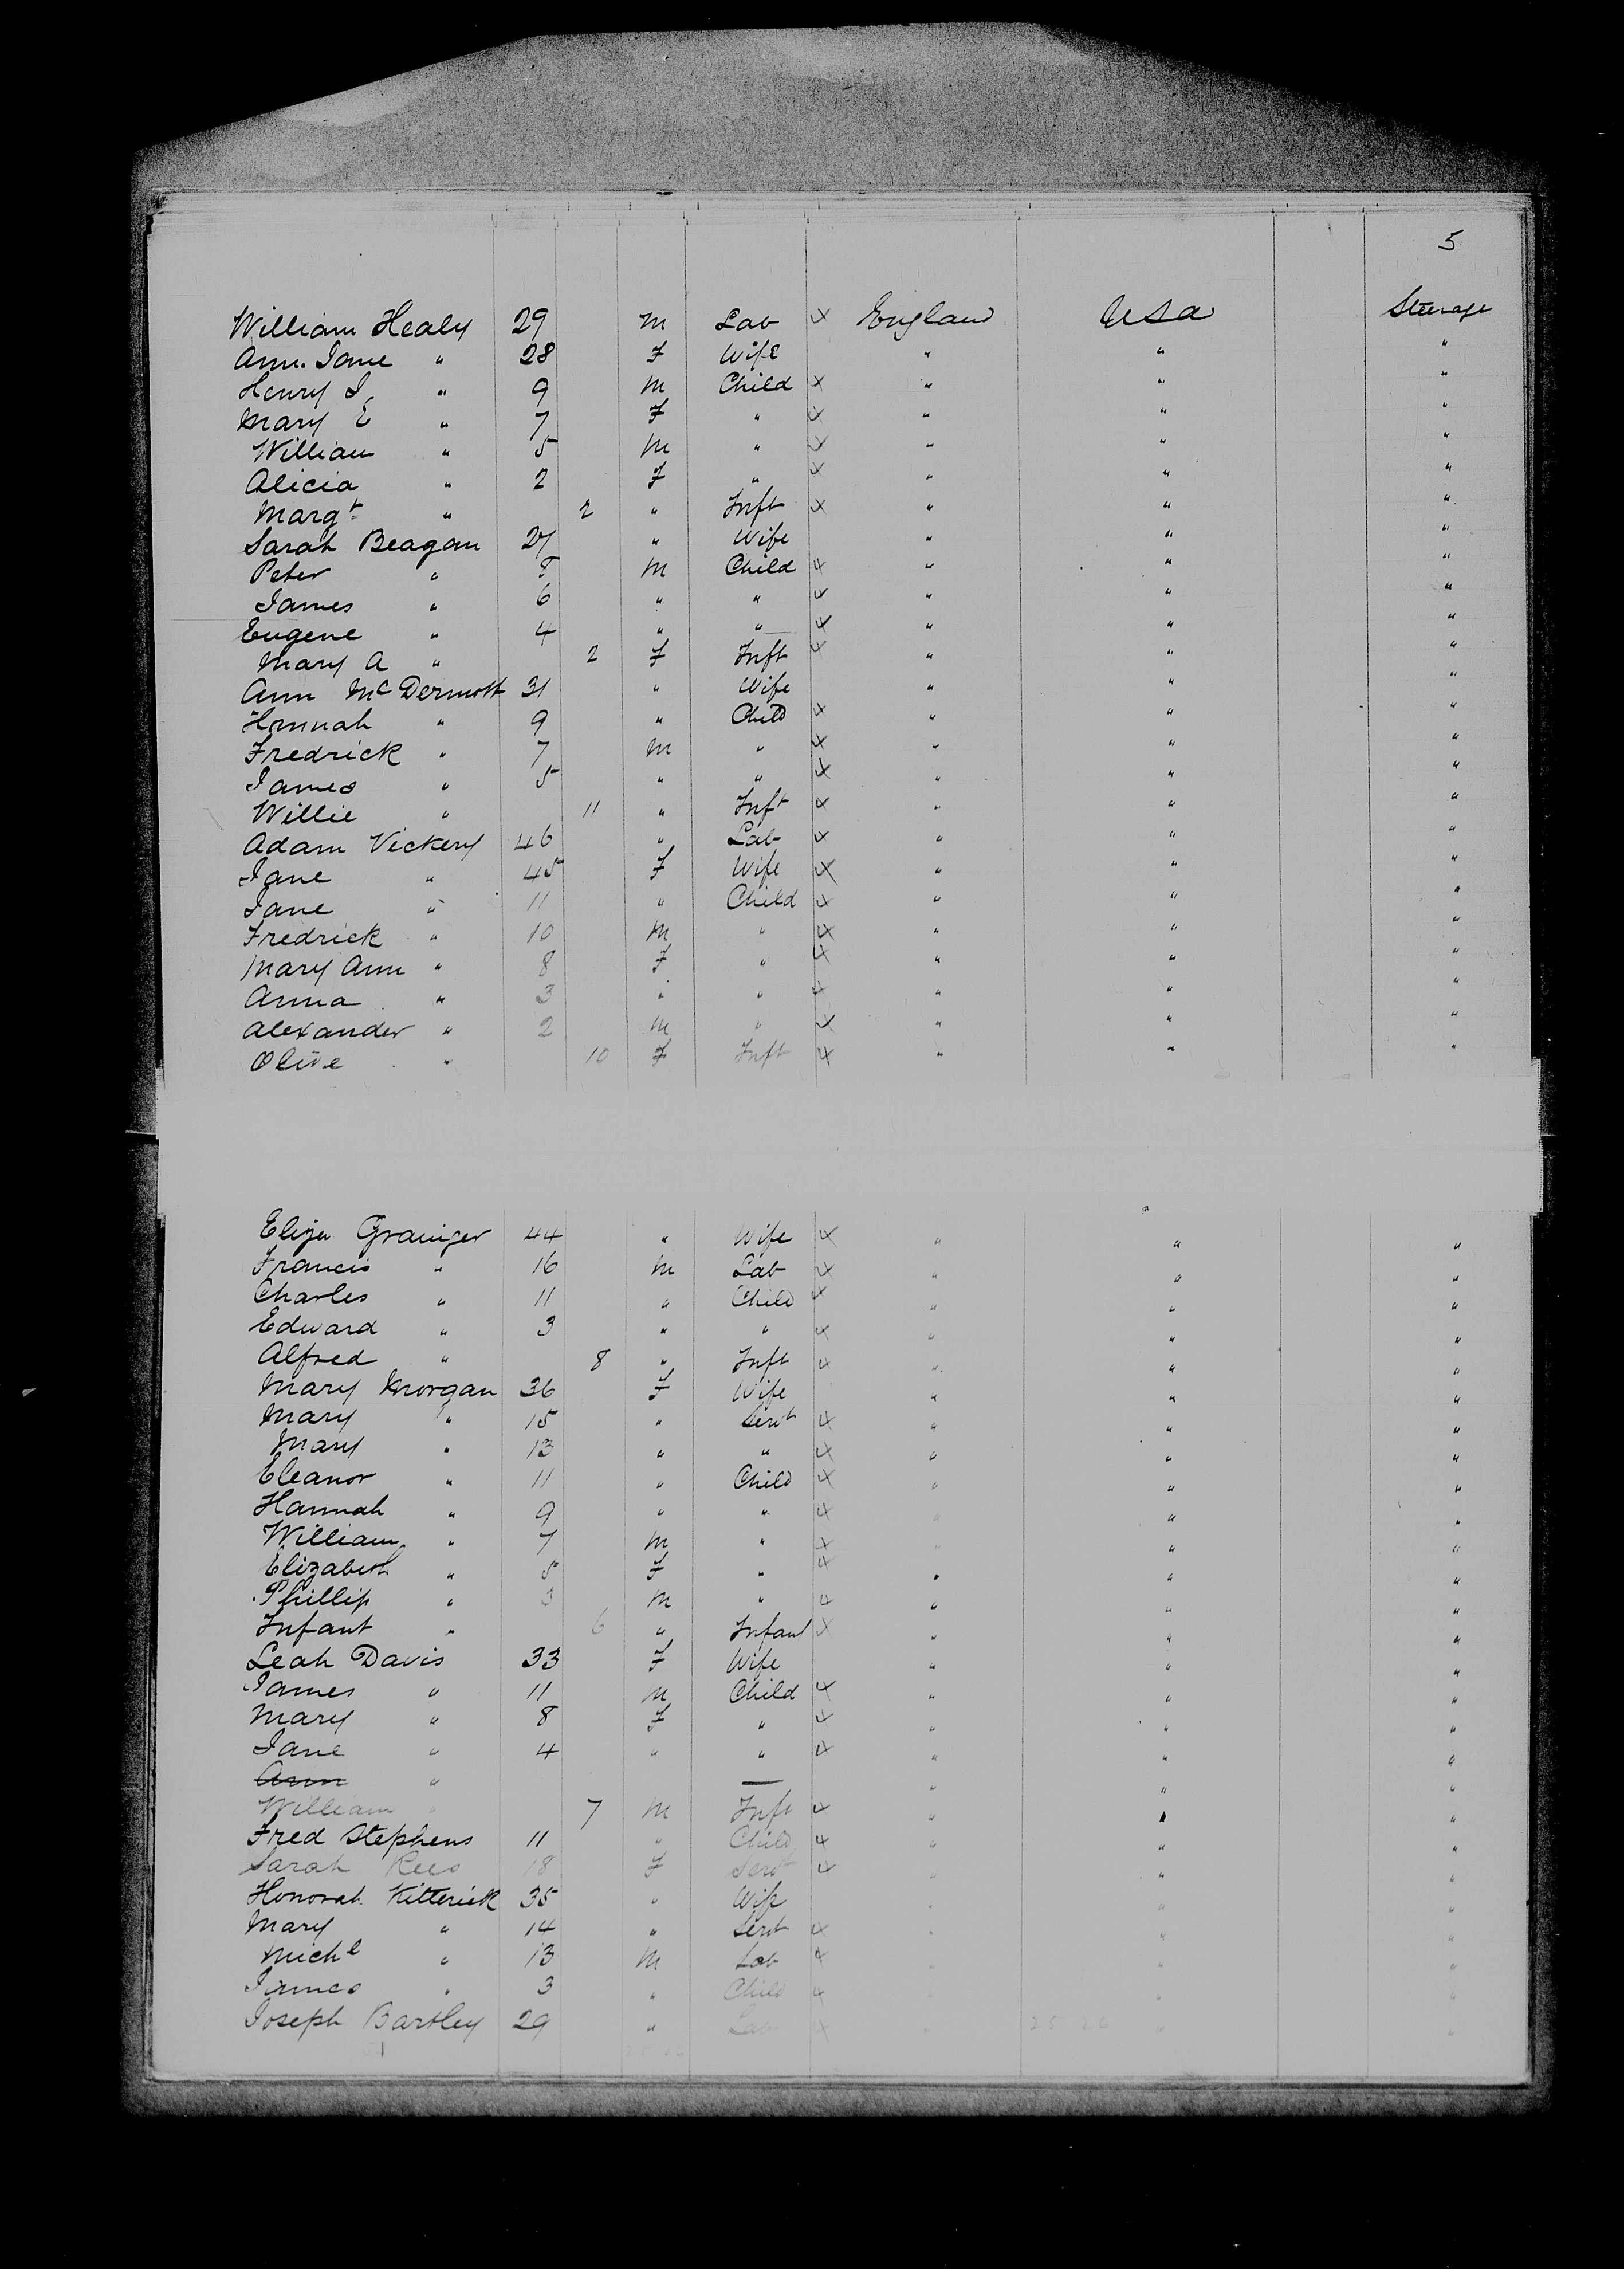 5
William Healy 29 M Lab x England USA Steerage
Ann. Jane " 28 F Wife " " "
Henry J, " 9 M Child x " " "
Mary E " 7 F " x " " "
William " 5 M " x " " "
Alicia " 2 F " x " " "
Margt " 2 " Inft x " " "
Sarah Beagan 27 " Wife " " "
Peter " 8 M Child x " " "
James " 6 " " x " " "
Eugene " 4 " " x " " "
Mary A " 2 F Inft x " " "
Ann McDermott 31 " Wife " " "
Hannah " 9 " Child x " " "
Fredrick " 7 M " x " " "
James " 5 " " x " " "
Willie " 11 " Inft x " " "
Adam Vickery 46 " Lab x " " "
Jane " 45 F Wife x " " "
Jane " 11 " Child x " " "
Fredrick " 10 M " x " " "
Mary Ann " 8 F " x " " "
Anna " 3 " " x " " "
Alexander " 2 M " x " " "
Olive " 10 F Inft x " " "
Eliza Grainger 44 " Wife x " " "
Francis " 16 M Lab x " " "
Charles " 11 " Child x " " "
Edward " 3 " " x " " "
Alfred " 8 " Inft x " " "
Mary Morgan 36 F Wife " " "
Mary " 15 " Servt x " " "
Mary " 13 " " x " " "
Eleanor " 11 " Child x " " "
Hannah " 9 " " x " " "
William " 7 M " x " " "
Elizabeth " 5 F " x " " "
Phillip " 3 M " x " " "
Infant " 6 " Infant x " " "
Leah Davis 33 F Wife " " "
James " 11 M Child x " " "
Mary " 8 F " x " " "
Jane " 4 " " x " " "
Ann " — " " "
William " 7 M Inft x " " "
Fred Stephens 11 " Child x " " "
Sarah Rees 18 F Servt x " " "
Honorah Kitterick 35 " Wife " " "
Mary " 14 " Servt x " " "
Michl " 13 M Lab x " " "
James " 3 " Child x " " "
Joseph Bartley 29 " Lab x " " "